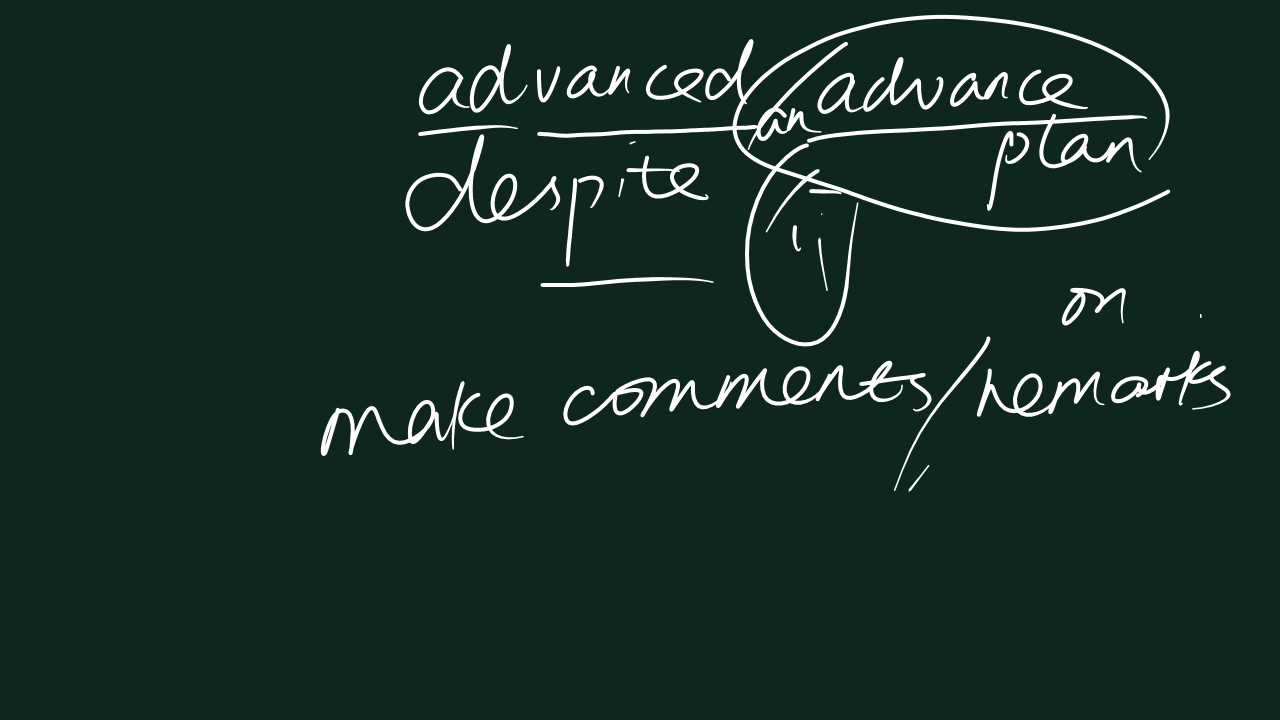 advanced / an advance
plan
despite
on
make comments / remarks